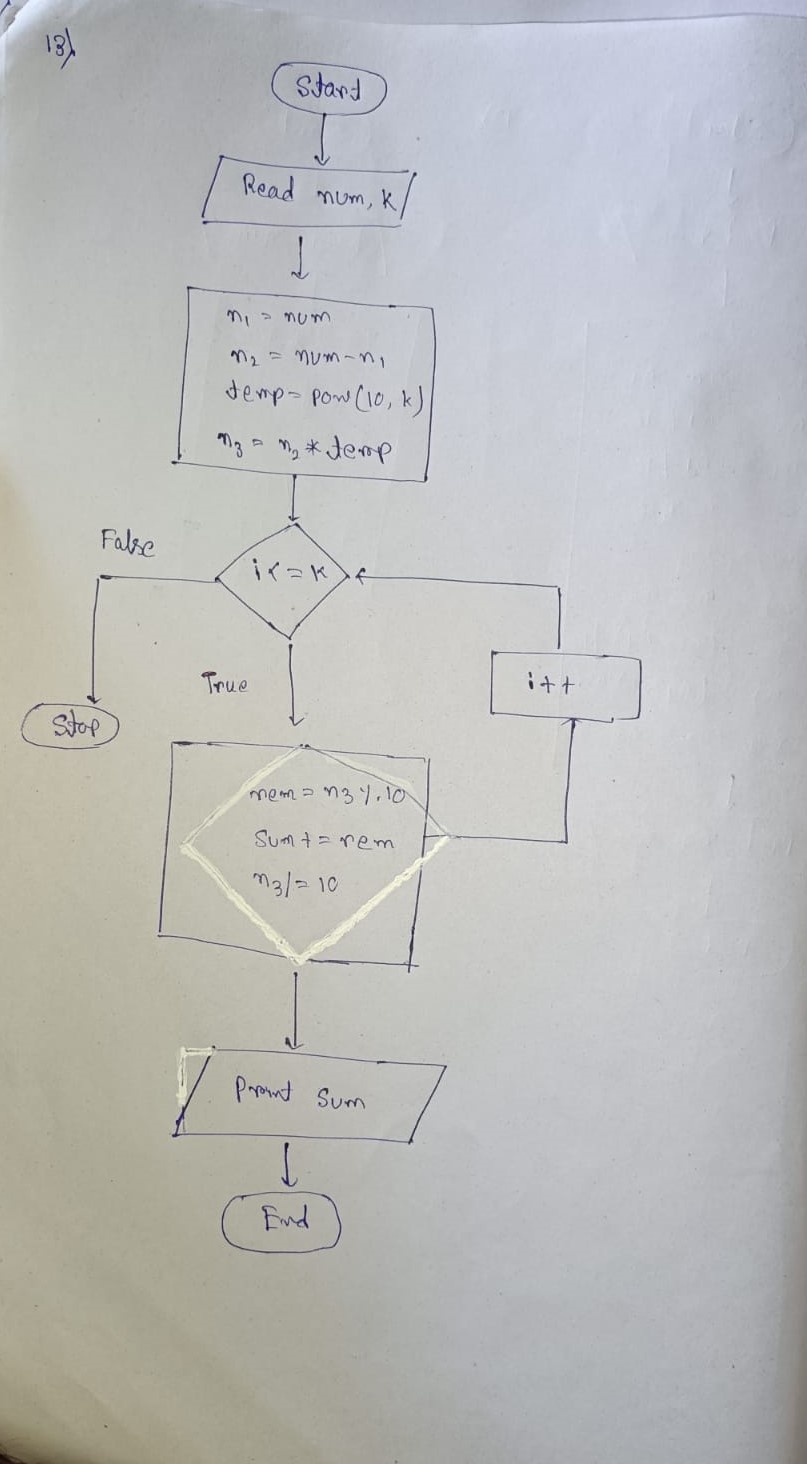 13)
Start
Read num, k
n1 = num
n2 = num - n1
temp = pow(10, k)
n3 = n2 * temp
False
i <= k
True
i++
Stop
rem = n3 % 10
Sum += rem
n3 /= 10
Print Sum
End